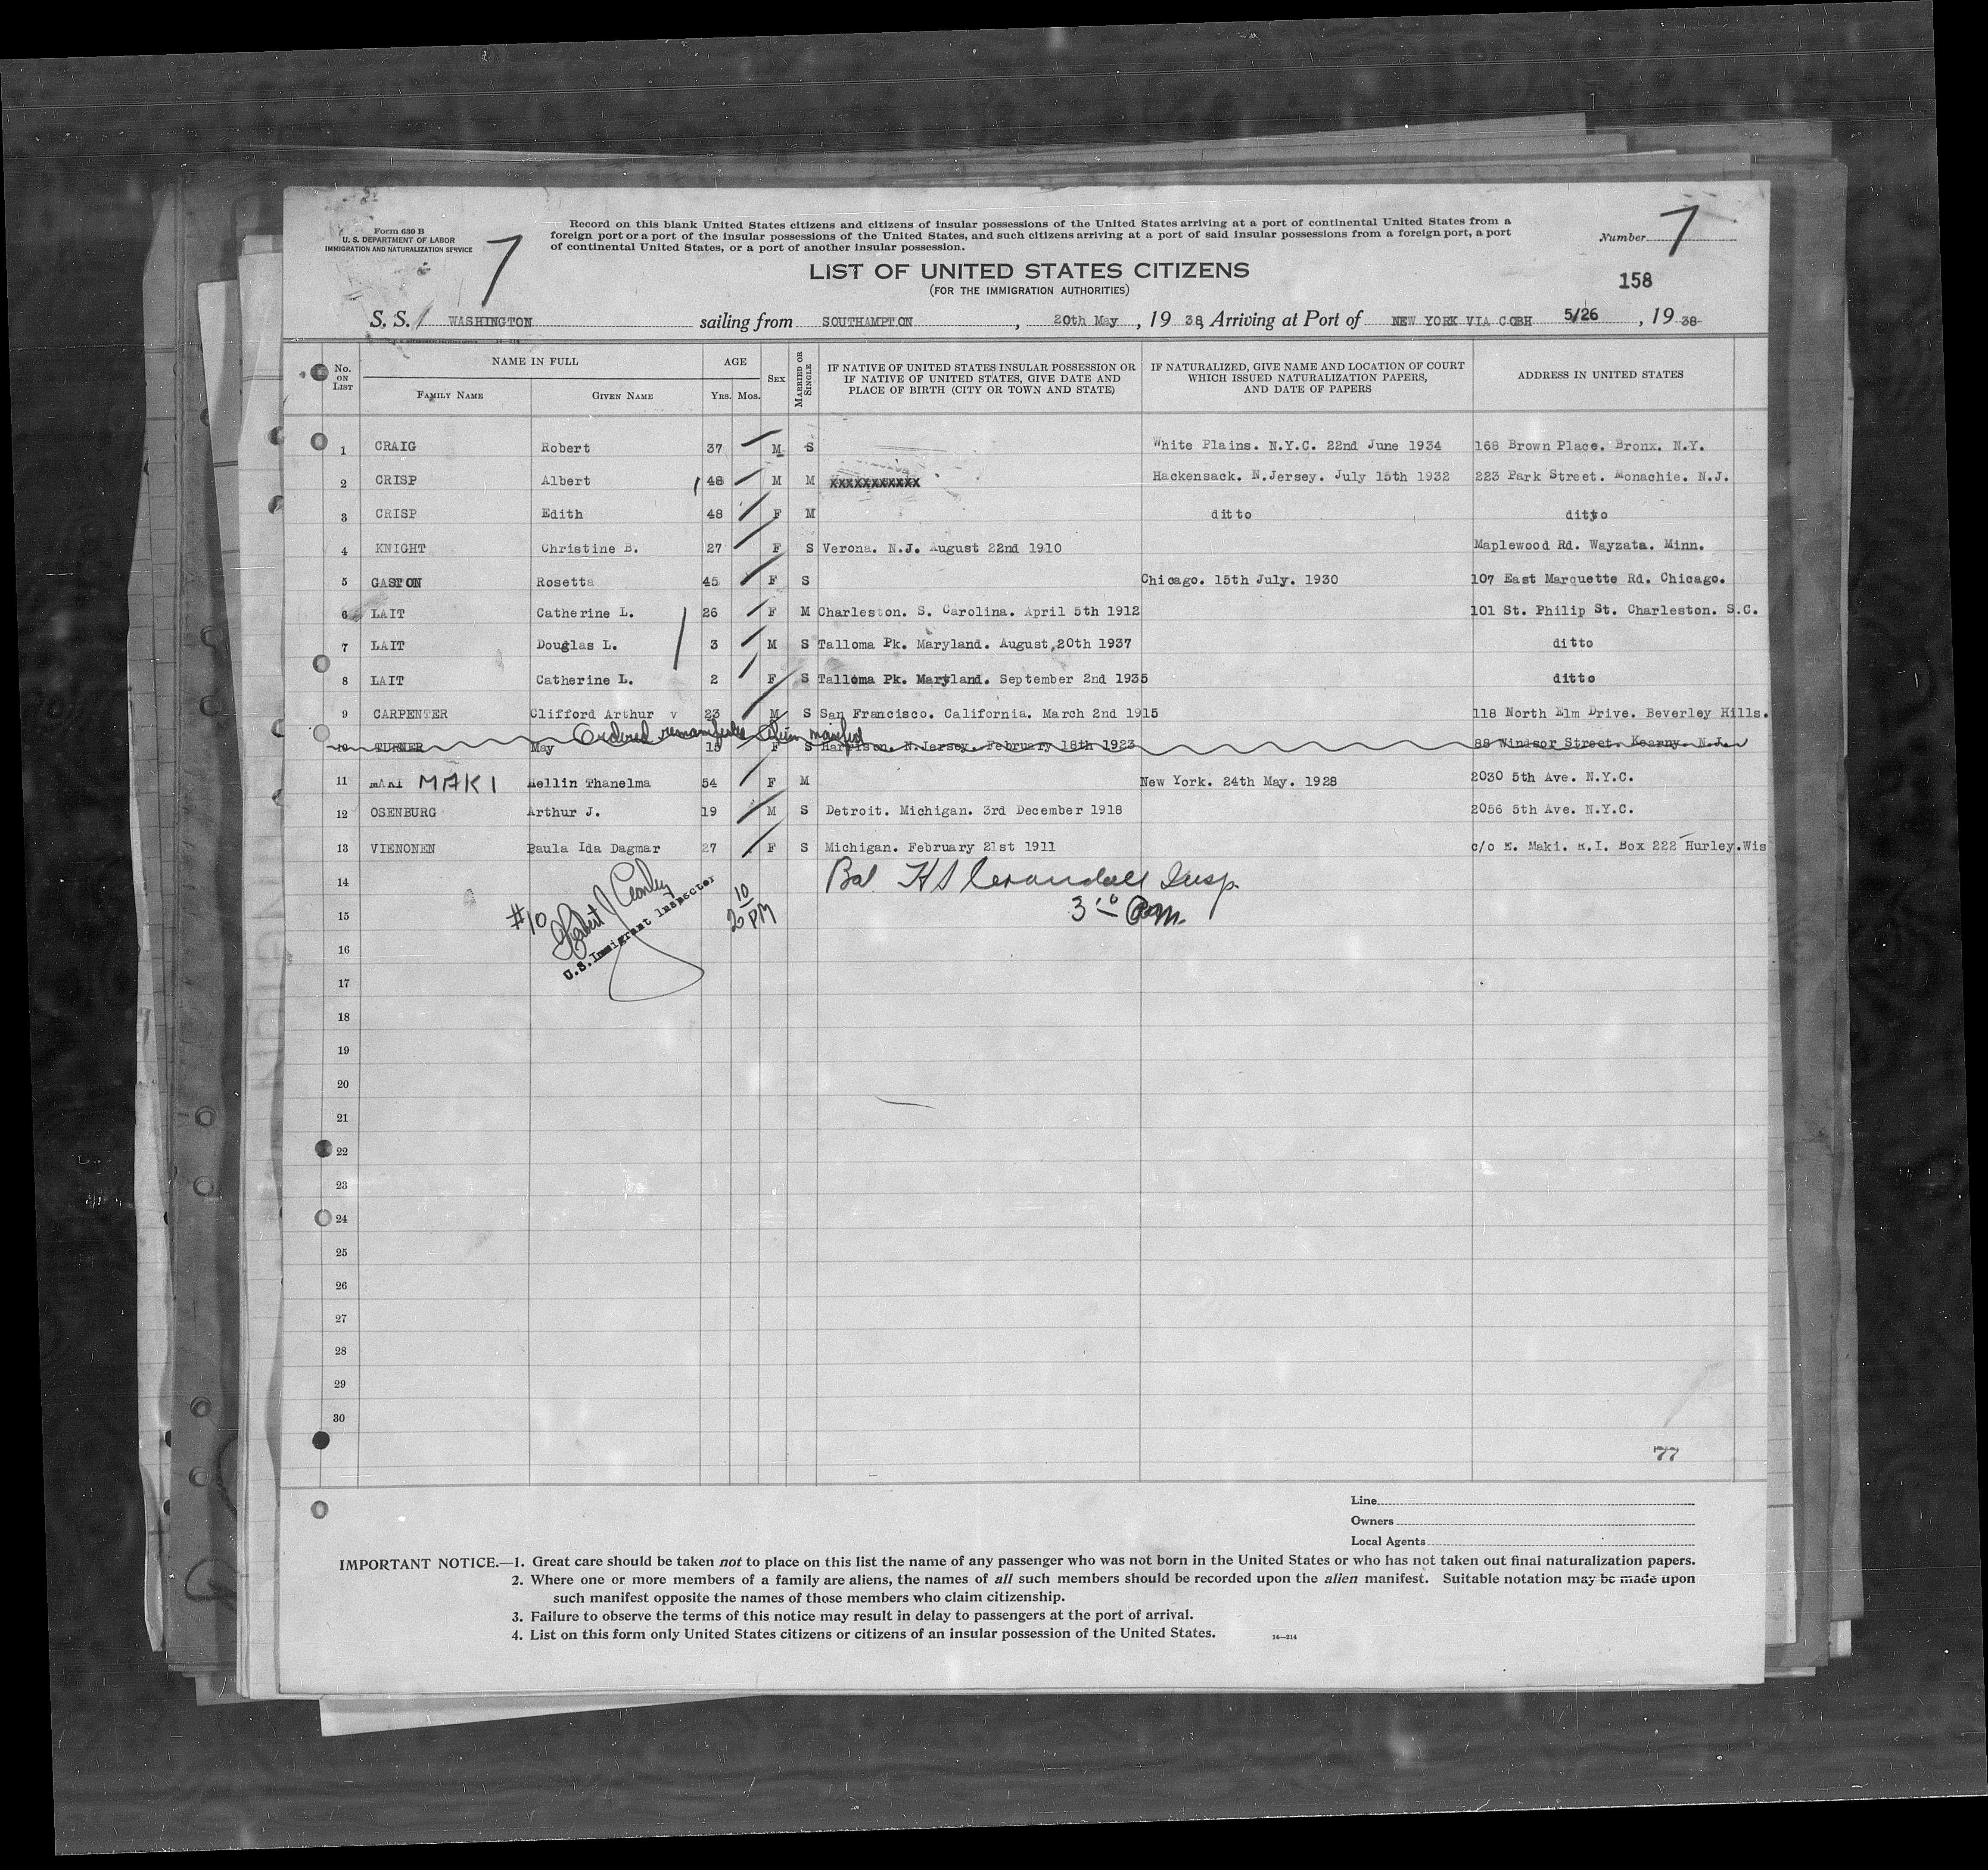 Form 630 B
U. S. DEPARTMENT OF LABOR
IMMIGRATION AND NATURALIZATION SERVICE
7
Record on this blank United States citizens and citizens of insular possessions of the United States arriving at a port of continental United States from a
foreign port or a port of the insular possessions of the United States, and such citizens arriving at a port of said insular possessions from a foreign port, a port
of continental United States, or a port of another insular possession.
Number 7
LIST OF UNITED STATES CITIZENS
(FOR THE IMMIGRATION AUTHORITIES)
158
S. S. WASHINGTON sailing from SOUTHAMPTON, 20th May, 19 38, Arriving at Port of NEW YORK VIA COBH 5/26, 19 38
No. ON LIST
NAME IN FULL
FAMILY NAME GIVEN NAME
AGE
YRS. MOS.
SEX
MARRIED OR SINGLE
IF NATIVE OF UNITED STATES INSULAR POSSESSION OR
IF NATIVE OF UNITED STATES, GIVE DATE AND
PLACE OF BIRTH (CITY OR TOWN AND STATE)
IF NATURALIZED, GIVE NAME AND LOCATION OF COURT
WHICH ISSUED NATURALIZATION PAPERS,
AND DATE OF PAPERS
ADDRESS IN UNITED STATES
1 CRAIG Robert 37 M S White Plains. N.Y.C. 22nd June 1934 168 Brown Place. Bronx. N.Y.
2 CRISP Albert 48 M M XXXXXXXXXXX Hackensack. N.Jersey. July 15th 1932 223 Park Street. Monachie. N.J.
3 CRISP Edith 48 F M ditto ditto
4 KNIGHT Christine B. 27 F S Verona. N.J. August 22nd 1910 Maplewood Rd. Wayzata. Minn.
5 GASTON Rosetta 45 F S Chicago. 15th July. 1930 107 East Marquette Rd. Chicago.
6 LAIT Catherine L. 26 F M Charleston. S. Carolina. April 5th 1912 101 St. Philip St. Charleston. S.C.
7 LAIT Douglas L. 3 M S Talloma Pk. Maryland. August,20th 1937 ditto
8 LAIT Catherine L. 2 F S Talloma Pk. Maryland. September 2nd 1935 ditto
9 CARPENTER Clifford Arthur v 23 M S San Francisco. California. March 2nd 1915 118 North Elm Drive. Beverley Hills.
Ordered remanifested Alien manifest
10 TURNER May 15 F S Harrison. N.Jersey. February 18th 1923 88 Windsor Street. Kearny. N.J.
11 MAKI MAKI Hellin Thanelma 54 F M New York. 24th May. 1928 2030 5th Ave. N.Y.C.
12 OSENBURG Arthur J. 19 M S Detroit. Michigan. 3rd December 1918 2056 5th Ave. N.Y.C.
13 VIENONEN Paula Ida Dagmar 27 F S Michigan. February 21st 1911 c/o E. Maki. R.I. Box 222 Hurley.Wis
14 Bal H S Crandall Insp.
15 #10 2 10 PM 3 10 P.M.
U.S. Immigrant Inspector
16
17
18
19
20
21
22
23
24
25
26
27
28
29
30
77
Line
Owners
Local Agents
IMPORTANT NOTICE.—1. Great care should be taken not to place on this list the name of any passenger who was not born in the United States or who has not taken out final naturalization papers.
2. Where one or more members of a family are aliens, the names of all such members should be recorded upon the alien manifest. Suitable notation may be made upon
such manifest opposite the names of those members who claim citizenship.
3. Failure to observe the terms of this notice may result in delay to passengers at the port of arrival.
4. List on this form only United States citizens or citizens of an insular possession of the United States.
14—214